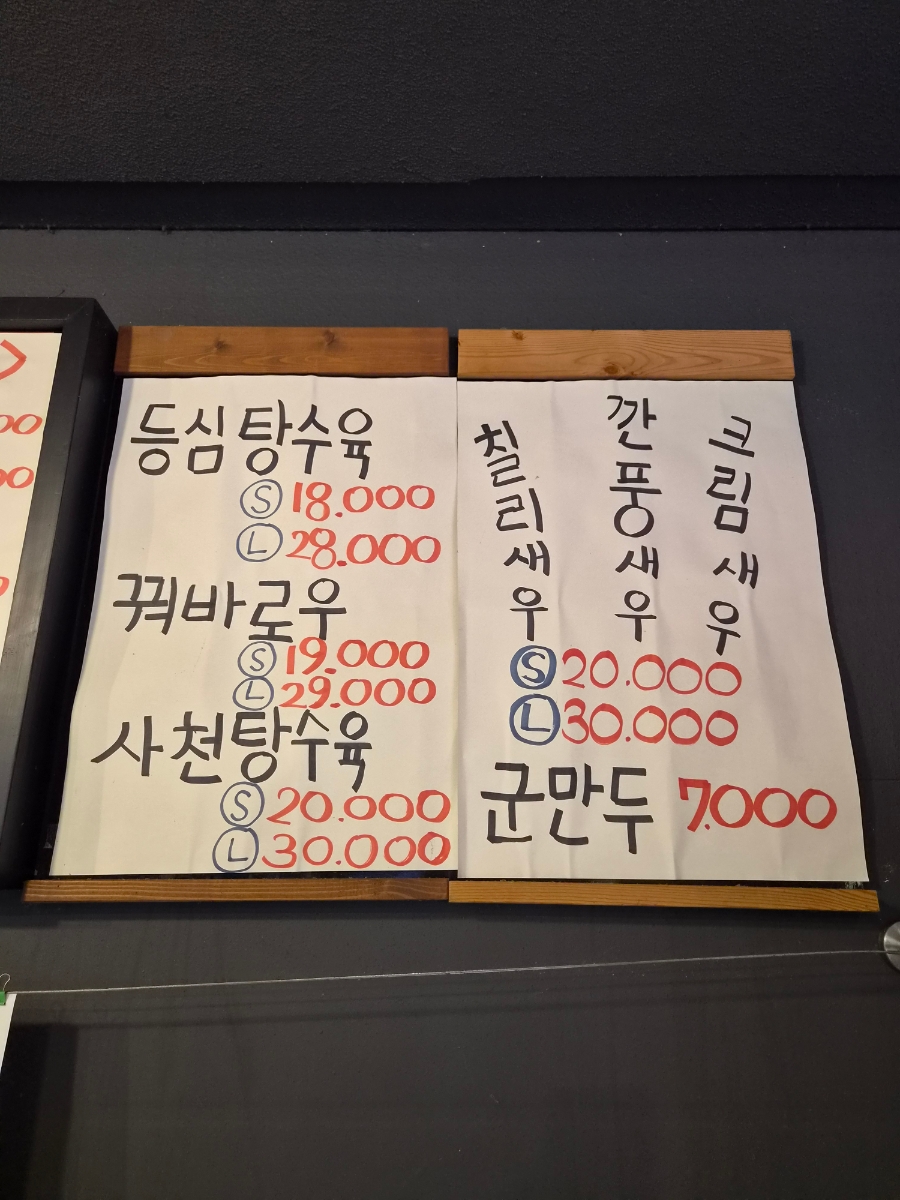 등심탕수육
Ⓢ 18.000
Ⓛ 28.000
꿔바로우
Ⓢ 19.000
Ⓛ 29.000
사천탕수육
Ⓢ 20.000
Ⓛ 30.000
칠리새우
깐풍새우
크림새우
Ⓢ 20.000
Ⓛ 30.000
군만두 7.000